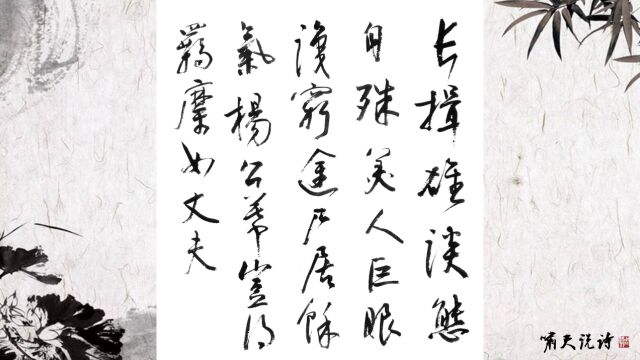 長揖雄談態
自殊美人巨眼
識窮途尸居餘
氣楊公幕豈得
羈縻女丈夫
啸天说诗